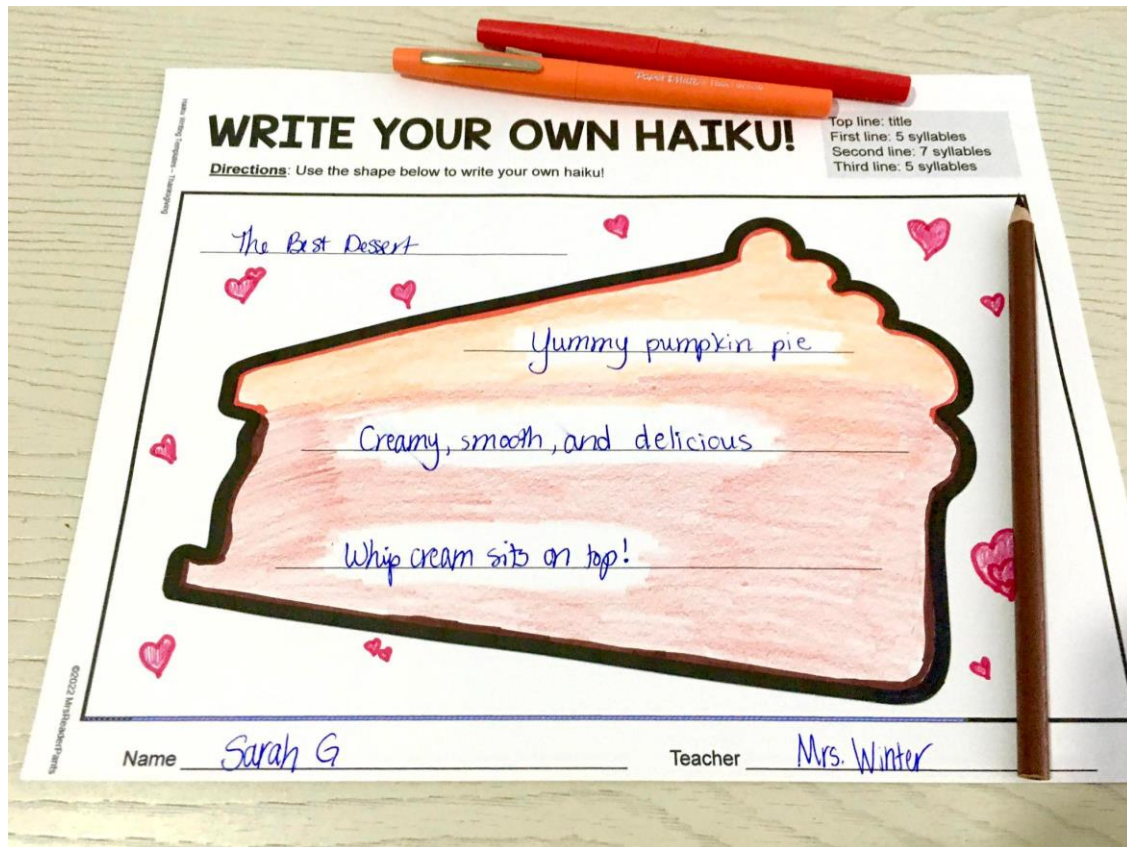 WRITE YOUR OWN HAIKU!
Directions: Use the shape below to write your own haiku!
Top line: title
First line: 5 syllables
Second line: 7 syllables
Third line: 5 syllables
The Best Dessert
Yummy pumpkin pie
Creamy, smooth, and delicious
Whip cream sits on top!
Name Sarah G
Teacher Mrs. Winter
Haiku Writing Templates - Thanksgiving
©2022 MrsReaderPants
Paper Mate